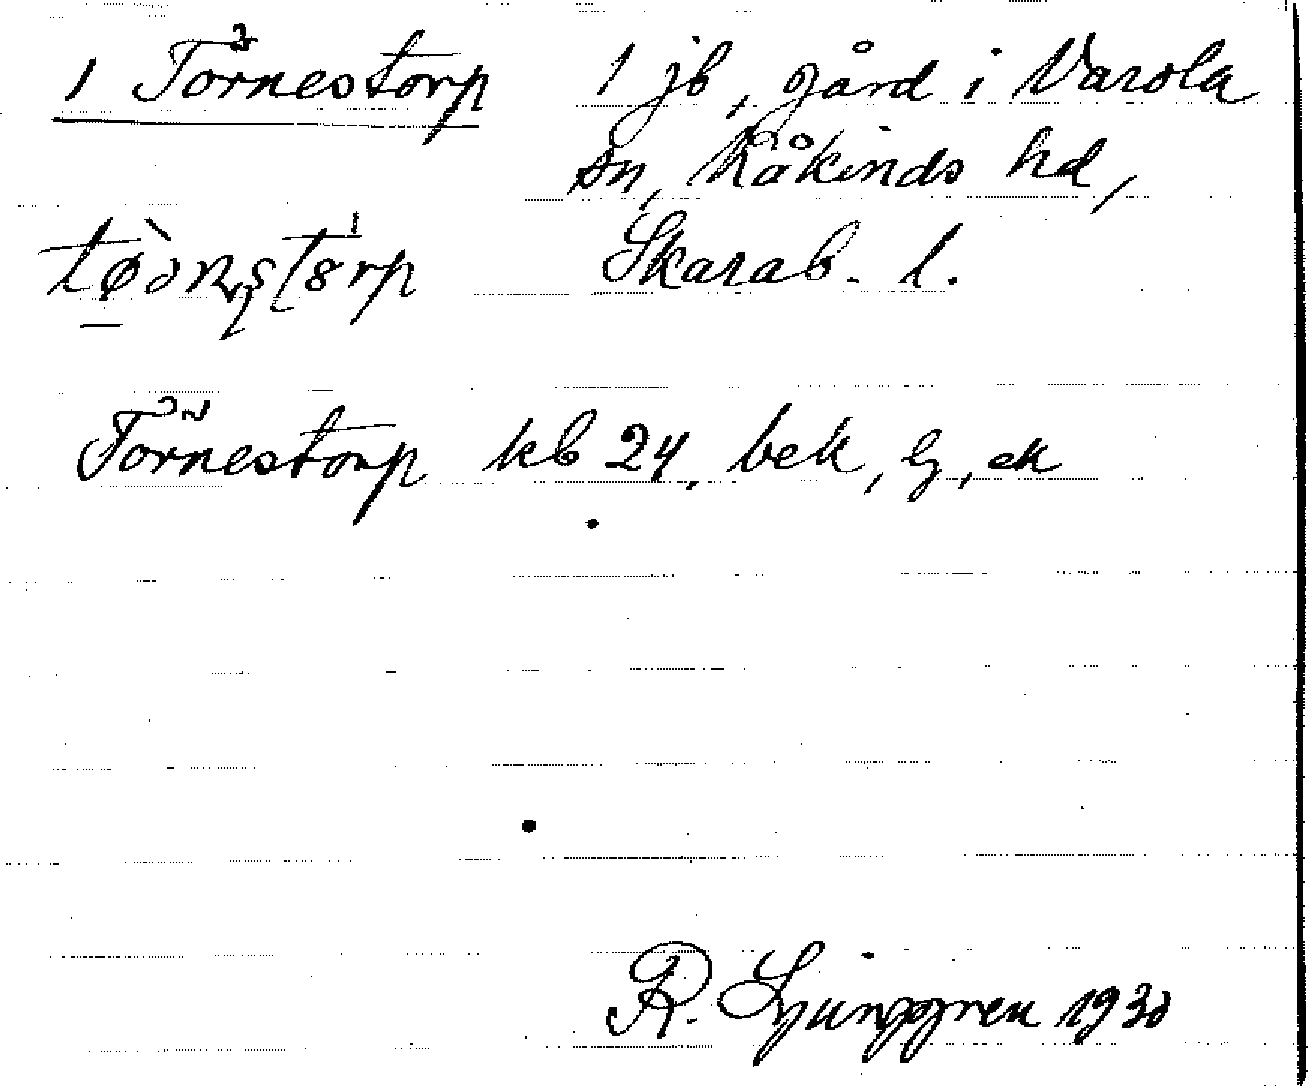 1 Törnestorp 1 jb, gård i Varola
sn, Kåkinds hd,
Skarab. l.
Törnestorp kb 24, bek, lj, ek
R. Ljunggren 1930